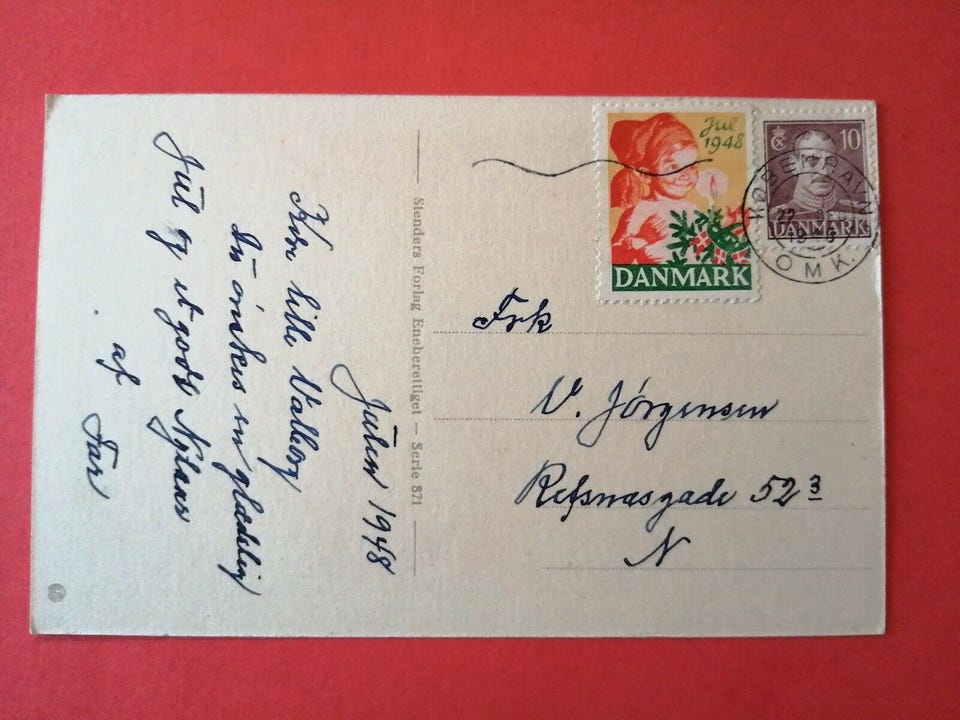 Julen 1948
Kære lille Valborg
Du ønskes en glædelig
Jul og et godt Nytaar
af Far
Stenders Forlag Eneberettiget — Serie 871
Jul
1948
DANMARK
10
DANMARK
KØBENHAVN
OMK.
Frk
V. Jørgensen
Refsnæsgade 52 3
N